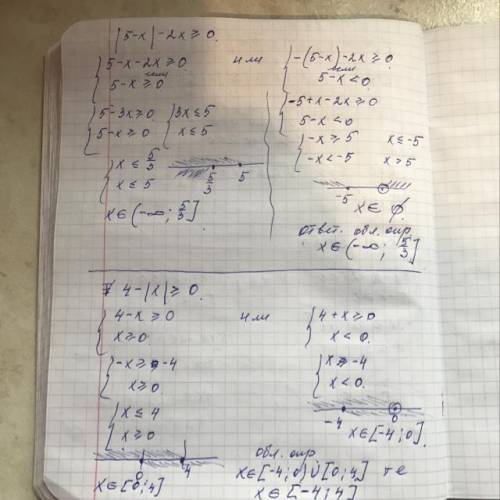 |5-x| -2x ≥ 0.
{ 5-x-2x ≥ 0 если
5-x ≥ 0
или
{ -(5-x)-2x ≥ 0 если
5-x < 0
{ 5-3x ≥ 0
5-x ≥ 0
{ 3x ≤ 5
x ≤ 5
{ -5+x-2x ≥ 0
5-x < 0
{ -x ≥ 5 x ≤ -5
-x < -5 x > 5
{ x ≤ 5/3
x ≤ 5
5/3 5
-5
x ∈ ∅
x ∈ (-∞; 5/3]
Ответ. обл. опр
x ∈ (-∞; 5/3]
4-|x| ≥ 0.
{ 4-x ≥ 0
x ≥ 0.
или
{ 4+x ≥ 0
x < 0.
{ -x ≥ -4
x ≥ 0
{ x ≥ -4
x < 0.
{ x ≤ 4
x ≥ 0
-4 0
x ∈ [-4; 0]
0 4
x ∈ [0; 4]
обл. опр
x ∈ [-4; 0) ∪ [0; 4] те
x ∈ [-4; 4]